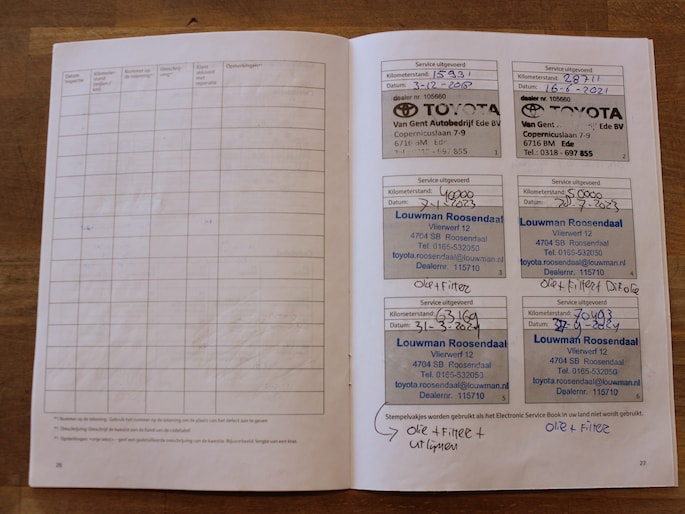 Datum inspectie
Kilometer-
stand
Nummer op de tekening
Omschrij-
ving
Klant
akkoord
met
reparatie
Opmerkingen
26
Service uitgevoerd
Kilometerstand: 15931
Datum: 3-12-20
dealer nr. 105660
TOYOTA
Van Gent Autobedrijf Ede BV
Copernicuslaan 7-9
6716 BM Ede
Tel.: 0318 - 697 855
1
Service uitgevoerd
Kilometerstand: 28711
Datum: 16-6-2021
dealer nr. 105660
TOYOTA
Van Gent Autobedrijf Ede BV
Copernicuslaan 7-9
6716 BM Ede
Tel.: 0318 - 697 855
2
Service uitgevoerd
Kilometerstand: 40000
Datum: 7-1-2023
Louwman Roosendaal
Vlierwerf 12
4704 SB Roosendaal
Tel. 0165-532050
toyota.roosendaal@louwman.nl
Dealernr. 115710
3
Olie + Filter
Service uitgevoerd
Kilometerstand: 50000
Datum: 20-7-2023
Louwman Roosendaal
Vlierwerf 12
4704 SB Roosendaal
Tel. 0165-532050
toyota.roosendaal@louwman.nl
Dealernr. 115710
4
Olie + Filter +
Service uitgevoerd
Kilometerstand: 63169
Datum: 31-3-2024
Louwman Roosendaal
Vlierwerf 12
4704 SB Roosendaal
Tel. 0165-532050
toyota.roosendaal@louwman.nl
Dealernr. 115710
5
Service uitgevoerd
Kilometerstand: 70493
Datum: 27-9-2024
Louwman Roosendaal
Vlierwerf 12
4704 SB Roosendaal
Tel. 0165-532050
toyota.roosendaal@louwman.nl
Dealernr. 115710
6
Stempelvakjes worden gebruikt als het Electronic Service Book in uw land niet wordt gebruikt.
→ Olie + Filter +
uitlijnen
Olie + Filter